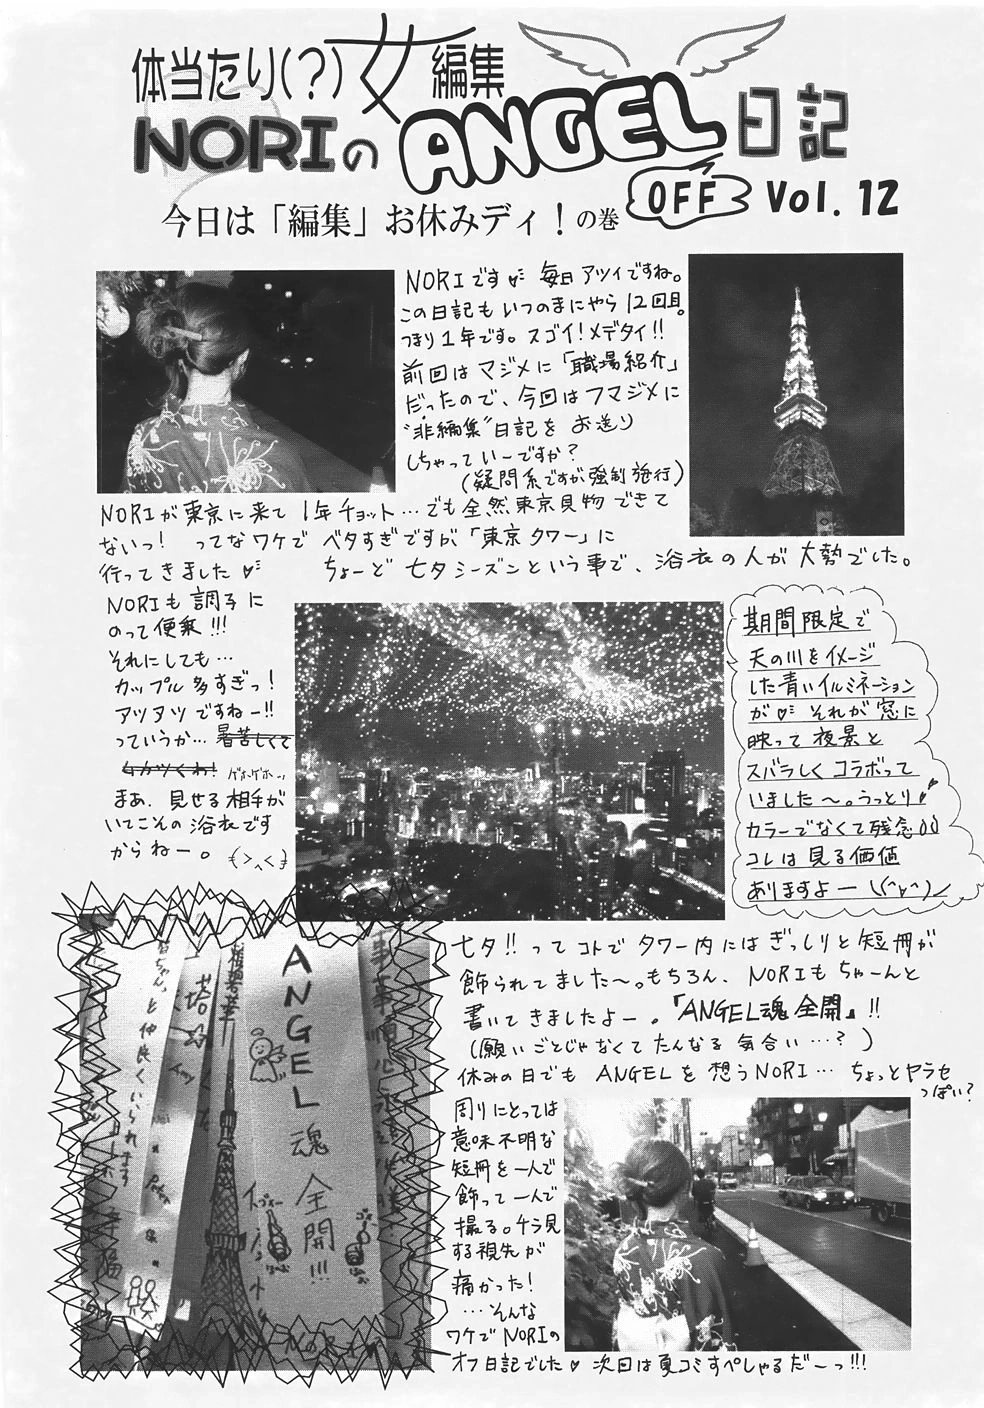 体当たり(?)女編集
NORIの ANGEL 日記
OFF Vol. 12
今日は「編集」お休みディ!の巻
NORIです 毎日アツイですね。
この日記もいつのまにやら12回目。
つまり1年です。スゴイ!メデタイ!!
前回はマジメに「職場紹介」
だったので、今回はフマジメに
“非編集”日記を お送り
しちゃっていーですか?
(疑問系ですが強制発行)
NORIが東京に来て 1年チョット…でも全然東京見物できて
ないっ! ってなワケで ベタすぎですが「東京タワー」に
行ってきました♥ ちょーど七夕シーズンという事で、浴衣の人が大勢でした。
NORIも調子に
のって便乗!!!
それにしても…
カップル多すぎっ!
アツアツですねー!!
っていうか…暑苦しくて
ムカツくわ! ゲホゲホー
まあ、見せる相手が
いてこその浴衣です
からねー。
期間限定で
天の川をイメージ
した青いイルミネーション
が それが窓に
映って夜景と
スバラしくコラボって
いました〜。うっとり
カラーでなくて残念
コレは見る価値
ありますよー
七夕!!ってコトでタワー内にはぎっしりと短冊が
飾られてました〜。もちろん、NORIもちゃーんと
書いてきましたよー。「ANGEL魂全開」!!
(願いごとじゃなくてたんなる気合い…?)
休みの日でも ANGELを想うNORI… ちょっとヤラセ
っぽい?
周りにとっては
意味不明な
短冊を一人で
飾って一人で
撮る。チラ見
する視先が
痛かった!
…そんな
ワケでNORIの
オフ日記でした♥ 次回は夏コミすぺしゃるだーっ!!!
ANGEL魂全開!!!
と仲良くいられます